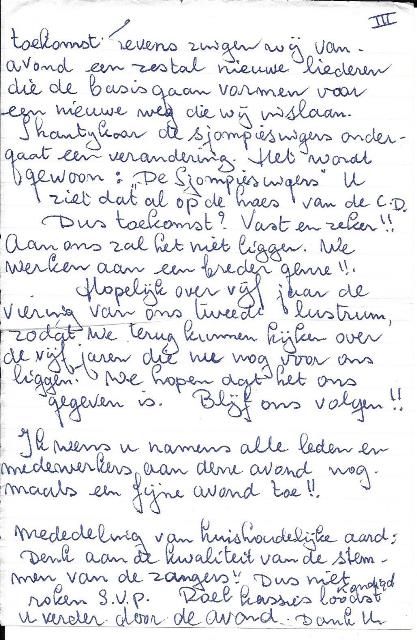 III
toekomst. Tevens zingen wij van-
avond een zestal nieuwe liederen
die de basis gaan vormen voor
een nieuwe weg die wij inslaan.
Shantykoor de Sjompiesingers onder-
gaat een verandering. Het wordt
gewoon: "De Sjompiesingers" U
ziet dat al op de hoes van de C.D.
Dus toekomst? Vast en zeker!!
Aan ons zal het niet liggen. We
werken aan een breder genre!!.
Hopelijk over vijf jaar de
viering van ons tweede lustrum,
zodat we terug kunnen kijken over
de vijf jaren die nu nog voor ons
liggen. We hopen dat het ons
gegeven is. Blijf ons volgen!!
Ik wens u namens alle leden en
medewerkers aan deze avond nog-
maals een fijne avond toe!!.
Mededeling van huishoudelijke aard:
Denk aan de kwaliteit van de stem-
men van de zangers!! Dus niet
roken S.V.P. Roel Kassies loodst
u verder door de avond. Dank U.